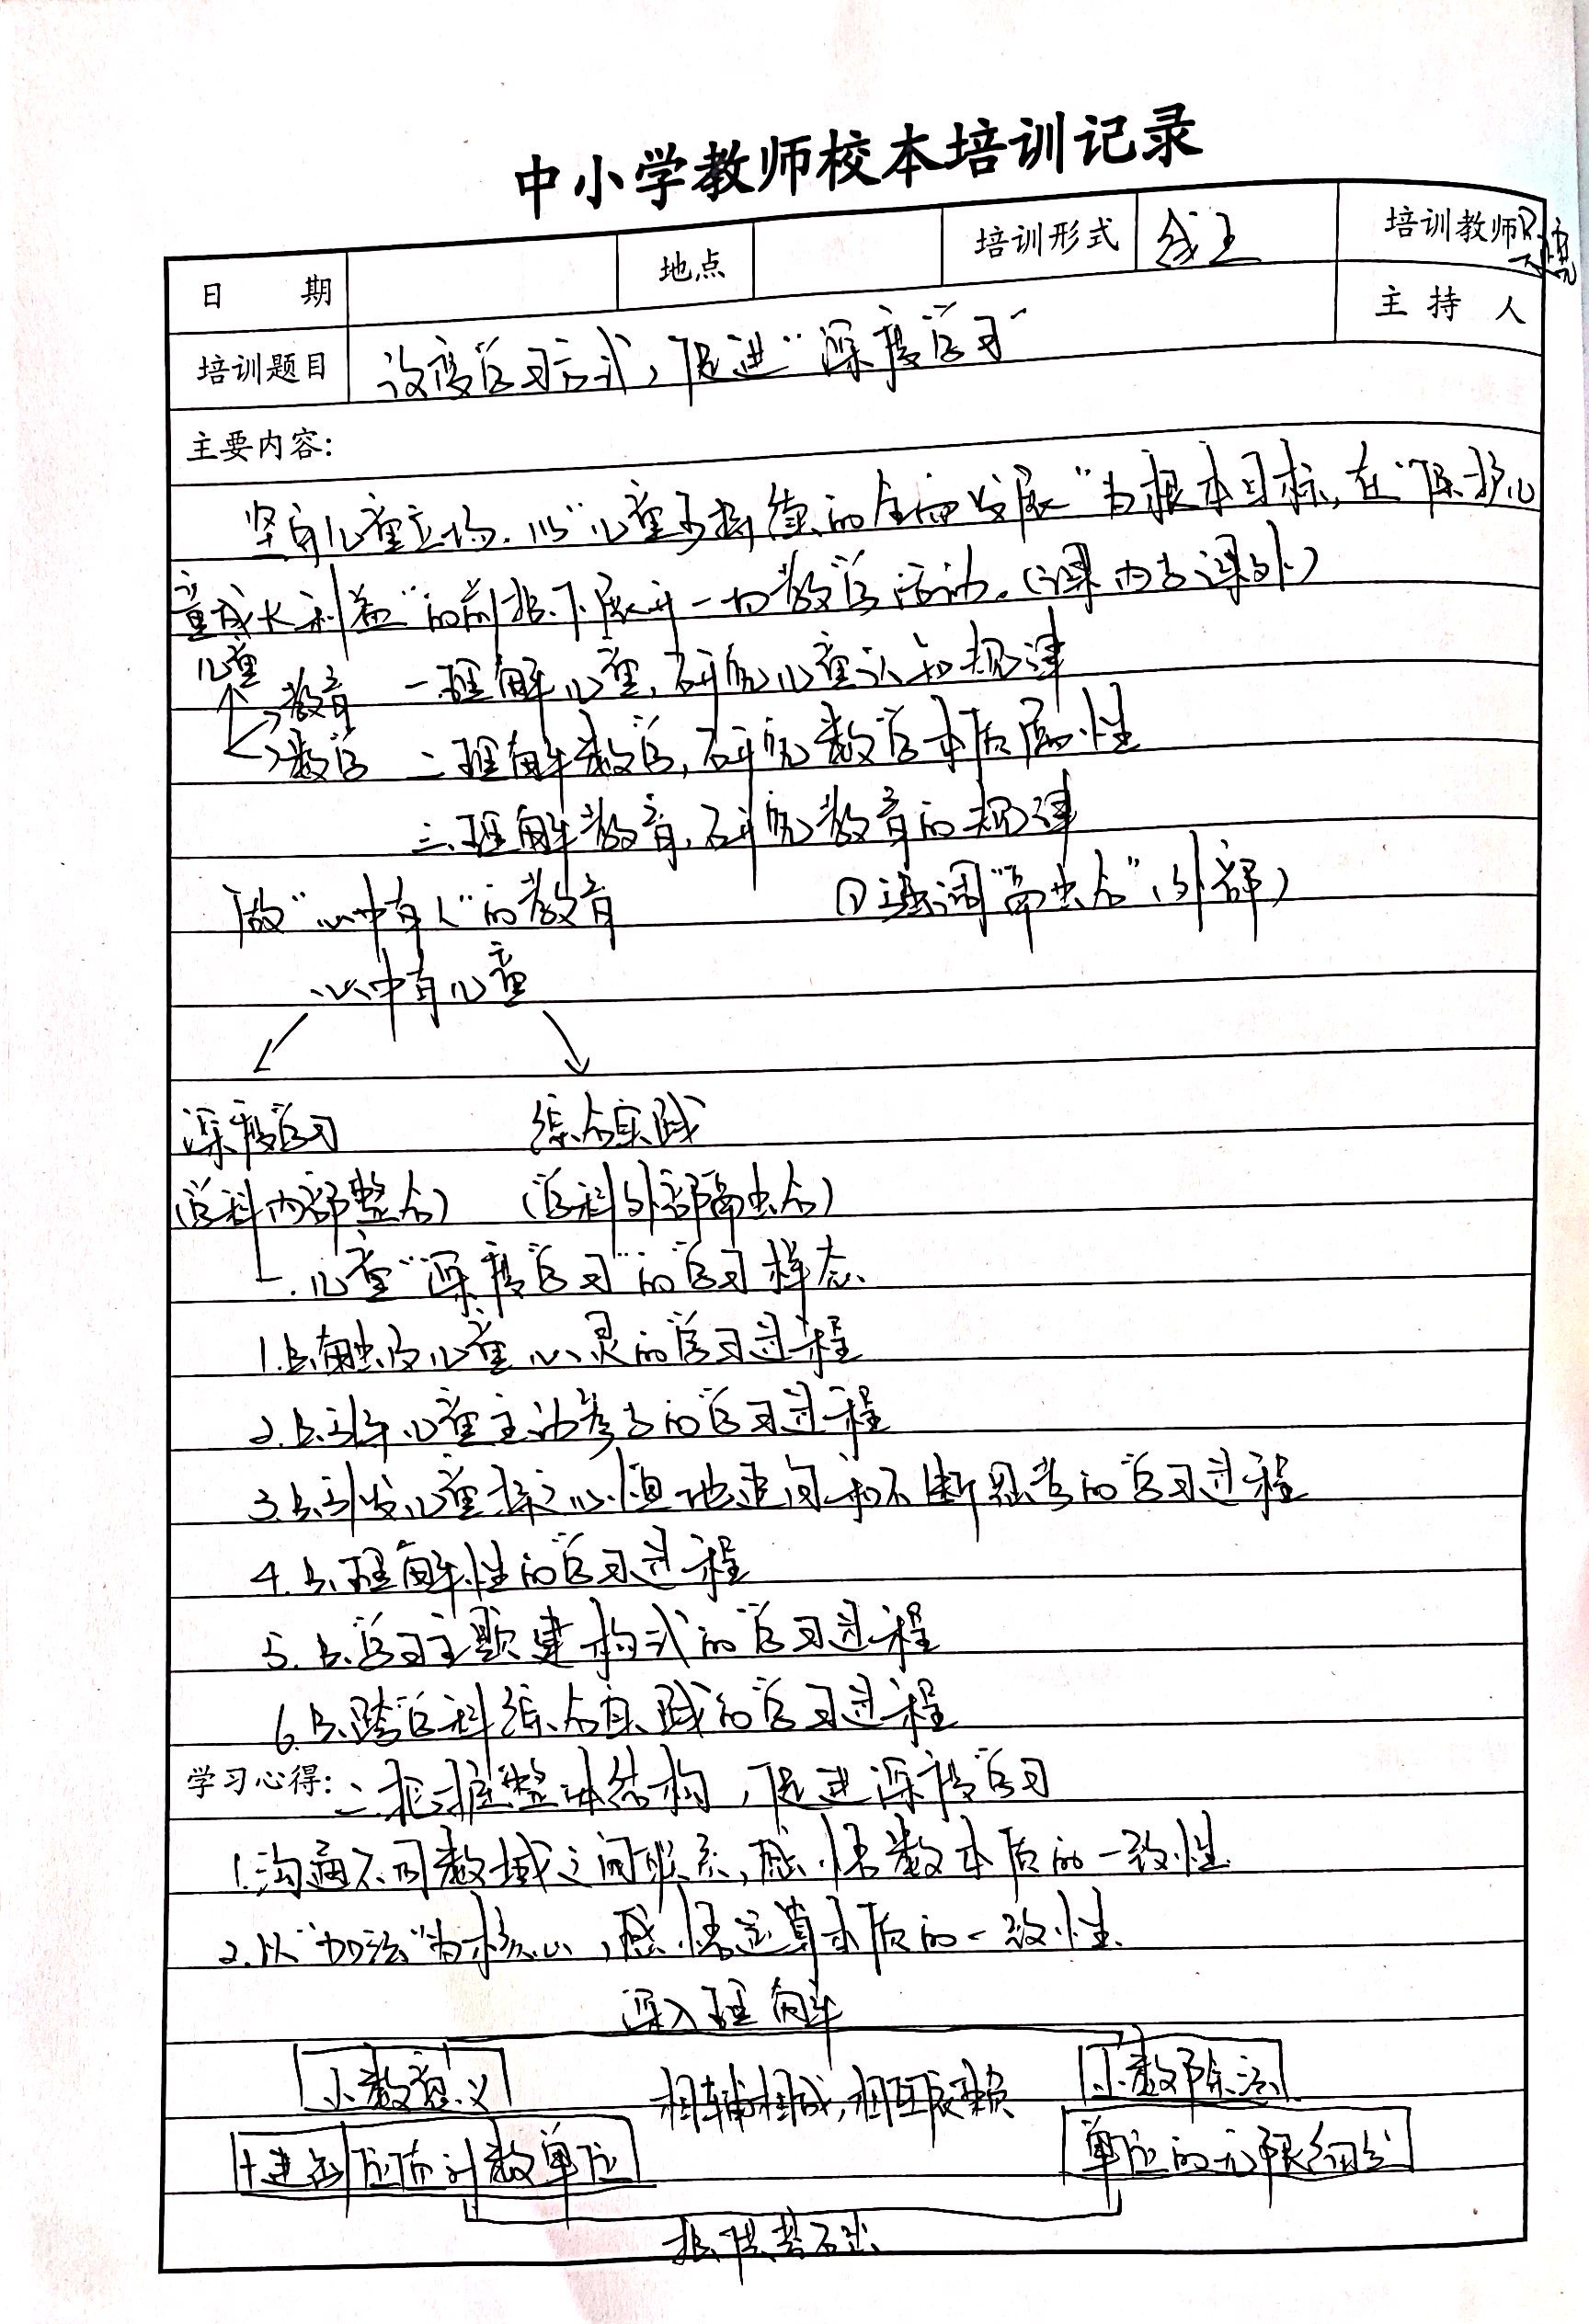 中小学教师校本培训记录
日 期 地点 培训形式 线上 培训教师
主 持 人
培训题目 改变学习方式，促进“深度学习”
主要内容：
坚守儿童立场，以“儿童可持续的全面发展”为根本目标，在“保护儿
童成长利益”的前提下展开一切教学活动。（课内与课外）
儿童
教育 一.理解儿童，研究儿童认知规律
数学 二.理解数学，研究数学本质属性
三.理解教育，研究教育的规律
做“心中有人”的教育 ①强调“融合”（外部）
心中有儿童
深度学习 综合实践
（学科内部整合） （学科外部融合）
一.儿童“深度学习”的学习样态
1.是触及儿童心灵的学习过程
2.是引导儿童主动参与的学习过程
3.是引发儿童探之心恒地追问和不断思考的学习过程
4.是理解性的学习过程
5.是学习主题建构式的学习过程
6.是跨学科综合实践的学习过程
学习心得：二.把握整体结构，促进深度学习
1.沟通不同数域之间联系，感悟数本质的一致性
2.以“加法”为核心，感悟运算本质的一致性.
深入理解
小数意义 相辅相成，相互依赖 小数除法
十进制 位值 计数单位 单位的无限细分
提供基础